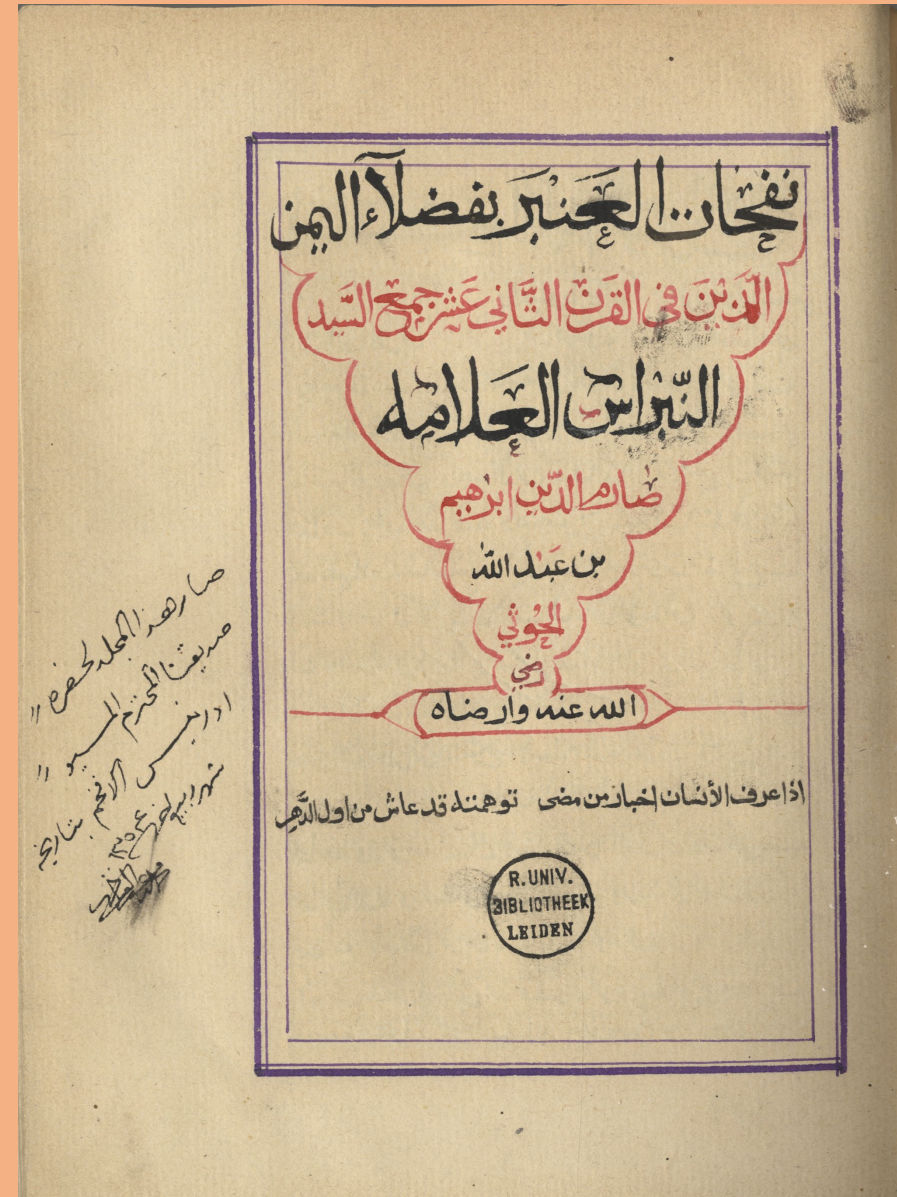 نفحات العنبر بفضلآء اليمن
الذين في القرن الثاني عشر جمع السيد
النبراس العلامه
صارم الدين ابرهيم
بن عبد الله
الحوثي
رضي
الله عنه وارضاه
اذا عرف الأنسان اخبار من مضى توهمته قد عاش من اول الدهر
R. UNIV.
BIBLIOTHEEK
LEIDEN
صار هذا المجلد لحضرة "
صديقنا المحترم المسيو "
ادريس الافخم بتاريخه
شهر ربيع